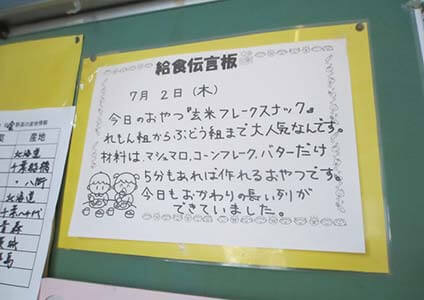 給食伝言板
7月 2日 (木)
今日のおやつ『玄米フレークスナック』
れもん組からぶどう組まで大人気なんです。
材料は、マシュマロ、コーンフレーク、バターだけ
5分もあれば作れるおやつです。
今日もおかわりの長い列が
できていました。
産地
北海道
千葉船橋
〃 八街
北海道
千葉八千代
青森
茨城